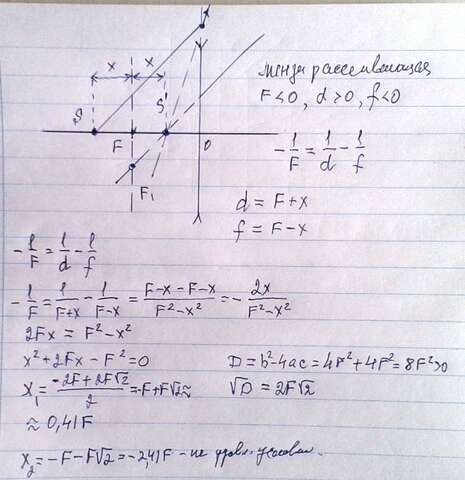 x x
S S' F O
F₁
линза рассеивающая
F<0, d>0, f<0
-1/F = 1/d - 1/f
d = F+x
f = F-x
-1/F = 1/d - 1/f
-1/F = 1/(F+x) - 1/(F-x) = (F-x-F-x)/(F²-x²) = -2x/(F²-x²)
2Fx = F²-x²
x²+2Fx-F²=0 D=b²-4ac=4F²+4F²=8F²>0
x₁=(-2F+2F√2)/2=-F+F√2≈ √D=2F√2
≈ 0,41F
x₂=-F-F√2=-2,41F - не удовл. условию.